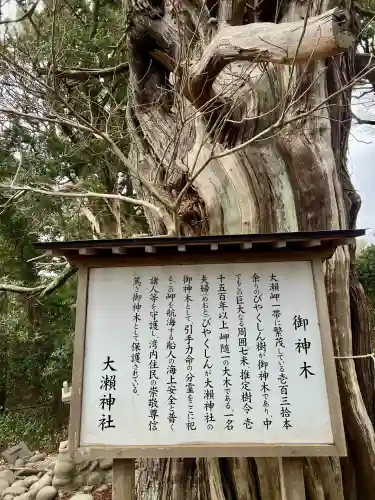 御神木
大瀬岬一帯に繁茂している壱百三拾本
余りのびやくしん樹が御神木であり、中
でもこの巨大な周囲七米推定樹令壱
千五百年以上岬随一の大木である。一名
夫婦(めおと)びやくしんが大瀬神社の
御神木として引手力命の分霊をここに祀
るこの岬を航海する船人の海上安全と普く
諸人等を守護し湾内住民の崇敬尊信
篤き御神木として保護されている。
大瀬神社